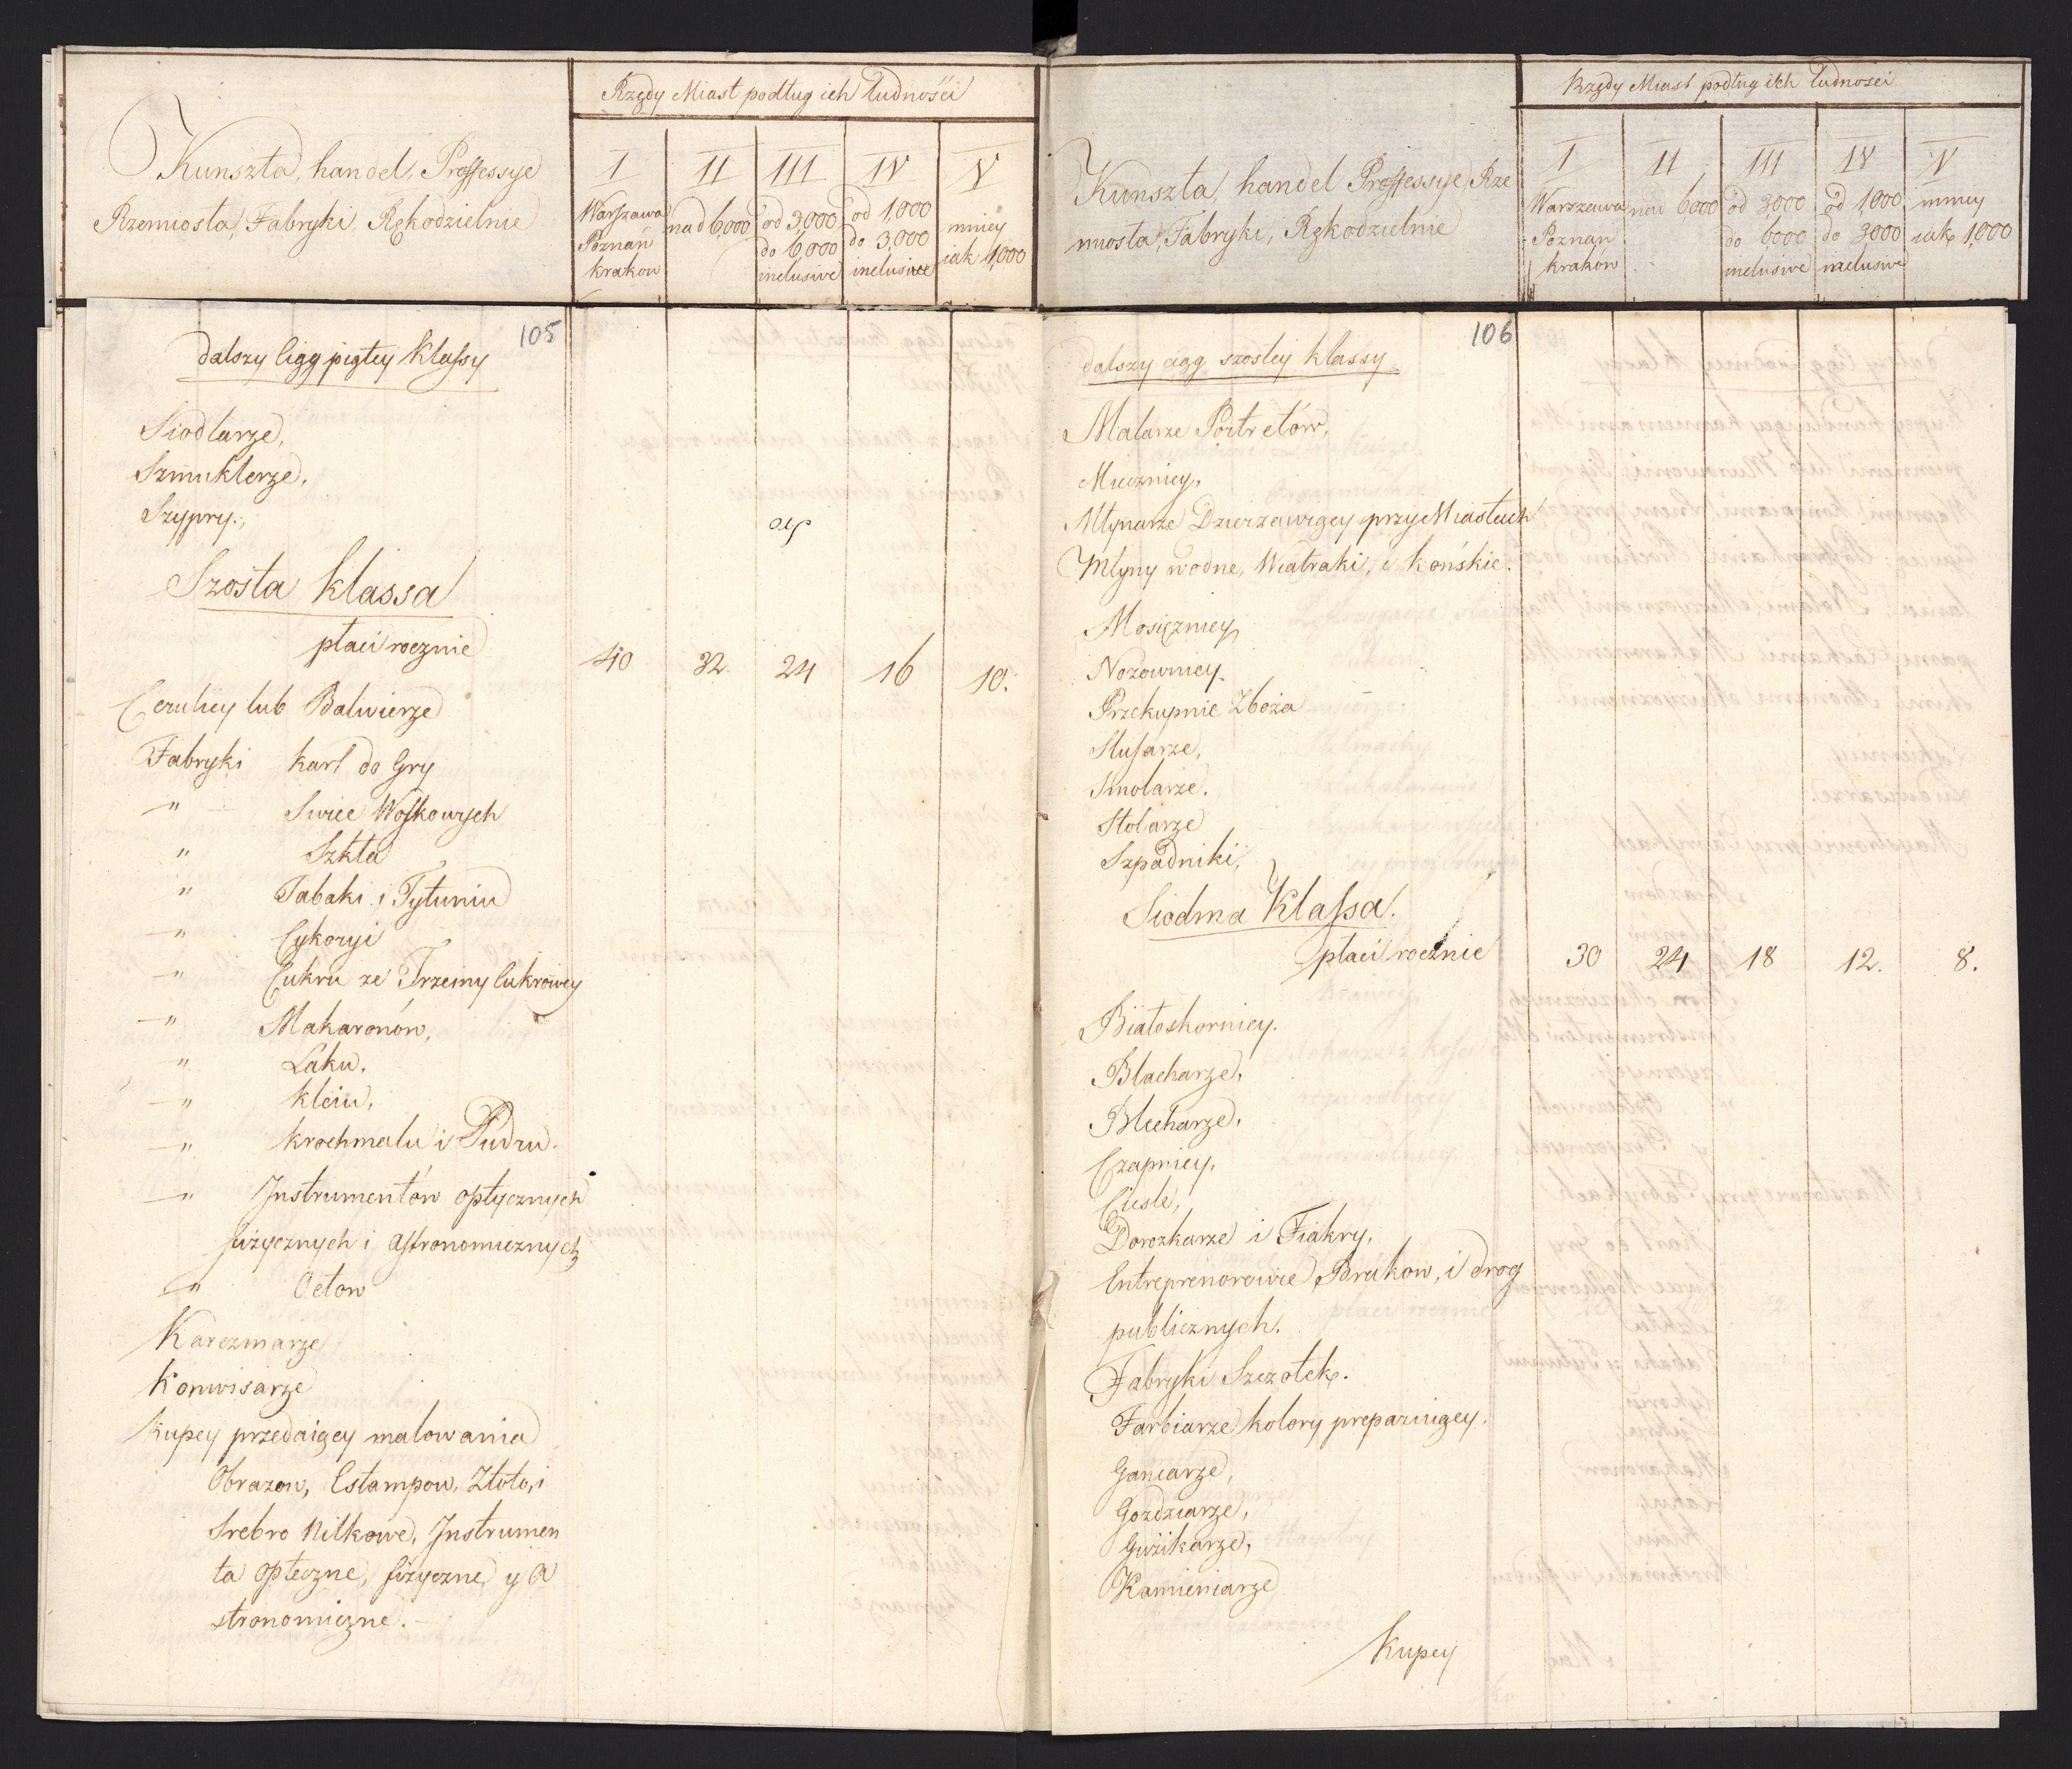 Kunszta, handel, Proffessye
Rzemiosła, Fabryki, Rękodzielnie
Rzędy Miast podług ich ludności
I II III IV V
Warszawa
Poznań
Krakow
nad 6,000
od 3,000
do 6,000
inclusive
od 1,000
do 3,000
inclusive
mniey
iak 1,000
105
dalszy Ciąg piątey Klassy
Siodlarze,
Szmuklerze,
Szypry,
Szosta Klassa
płaci rocznie 40 32. 24 16 10.
Cerulicy lub Balwierze
Fabryki Kart do Gry
" Swiec Woskowych
" Szkła
" Tabaki i Tytuniu
" Cykoryi
" Cukru ze Trzciny Cukrowey
" Makaronów,
" Laku,
" Kleiu,
" Krochmalu i Pudru.
" Instrumentów optycznych
fizycznych i Astronomicznych
" Octow
Karczmarze
Konwisarze
Kupcy przedaiący malowania
Obrazow, Estampow, Złoto, i
Srebro Nitkowe, Instrumen
ta opteczne, fizyczne, y A
stronomiczne.
Kunszta, handel Proffessye, Rze
miosła, Fabryki, Rękodzielnie
Rzędy Miast podług ich ludności
I II III IV V
Warszawa
Poznań
Krakow
nad 6000
od 3,000
do 6000
inclusive
od 1,000
do 3000
inclusive
mniey
iak 1,000
106
dalszy ciąg szostey klassy
Malarze Portretów,
Miecznicy,
Młynarze Dzierzawiący przy Miastach
Młyny wodne, Wiatraki, i końskie.
Mosięznicy
Nozownicy.
Przekupnie Zboża
Slusarze,
Smolarze.
Stolarze
Szpadniki,
Siodma Klassa.
płaci rocznie 30 24 18 12. 8.
Białoskornicy.
Blacharze,
Blicharze,
Czapnicy,
Ciesle,
Dorozkarze i Fiakry,
Entreprenorowie Brukow, i drog
publicznych.
Fabryki Szczotek.
Farbiarze kolory preparuiący,
Gancarze,
Gozdziarze,
Guzikarze,
Kamieniarze
Kupcy